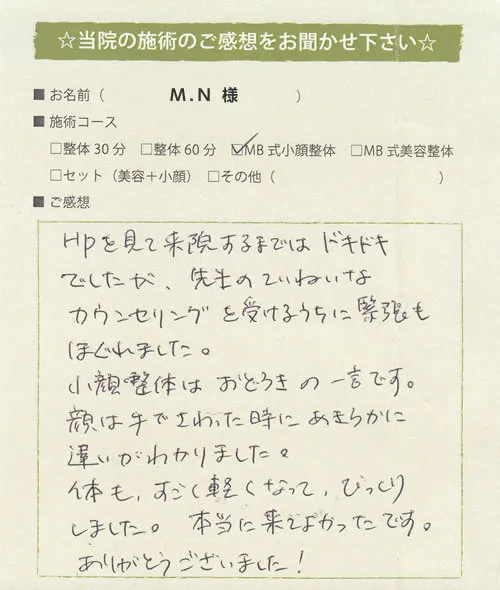 ☆当院の施術のご感想をお聞かせ下さい☆
■ お名前( M.N 様 )
■ 施術コース
□整体30分 □整体60分 ☑MB式小顔整体 □MB式美容整体
□セット(美容+小顔) □その他( )
■ ご感想
HPを見て来院するまではドキドキ
でしたが、先生のていねいな
カウンセリングを受けるうちに緊張も
ほぐれました。
小顔整体はおどろきの一言です。
顔は手でさわった時にあきらかに
違いがわかりました。
体も、すごく軽くなって、びっくり
しました。 本当に来てよかったです。
ありがとうございました!